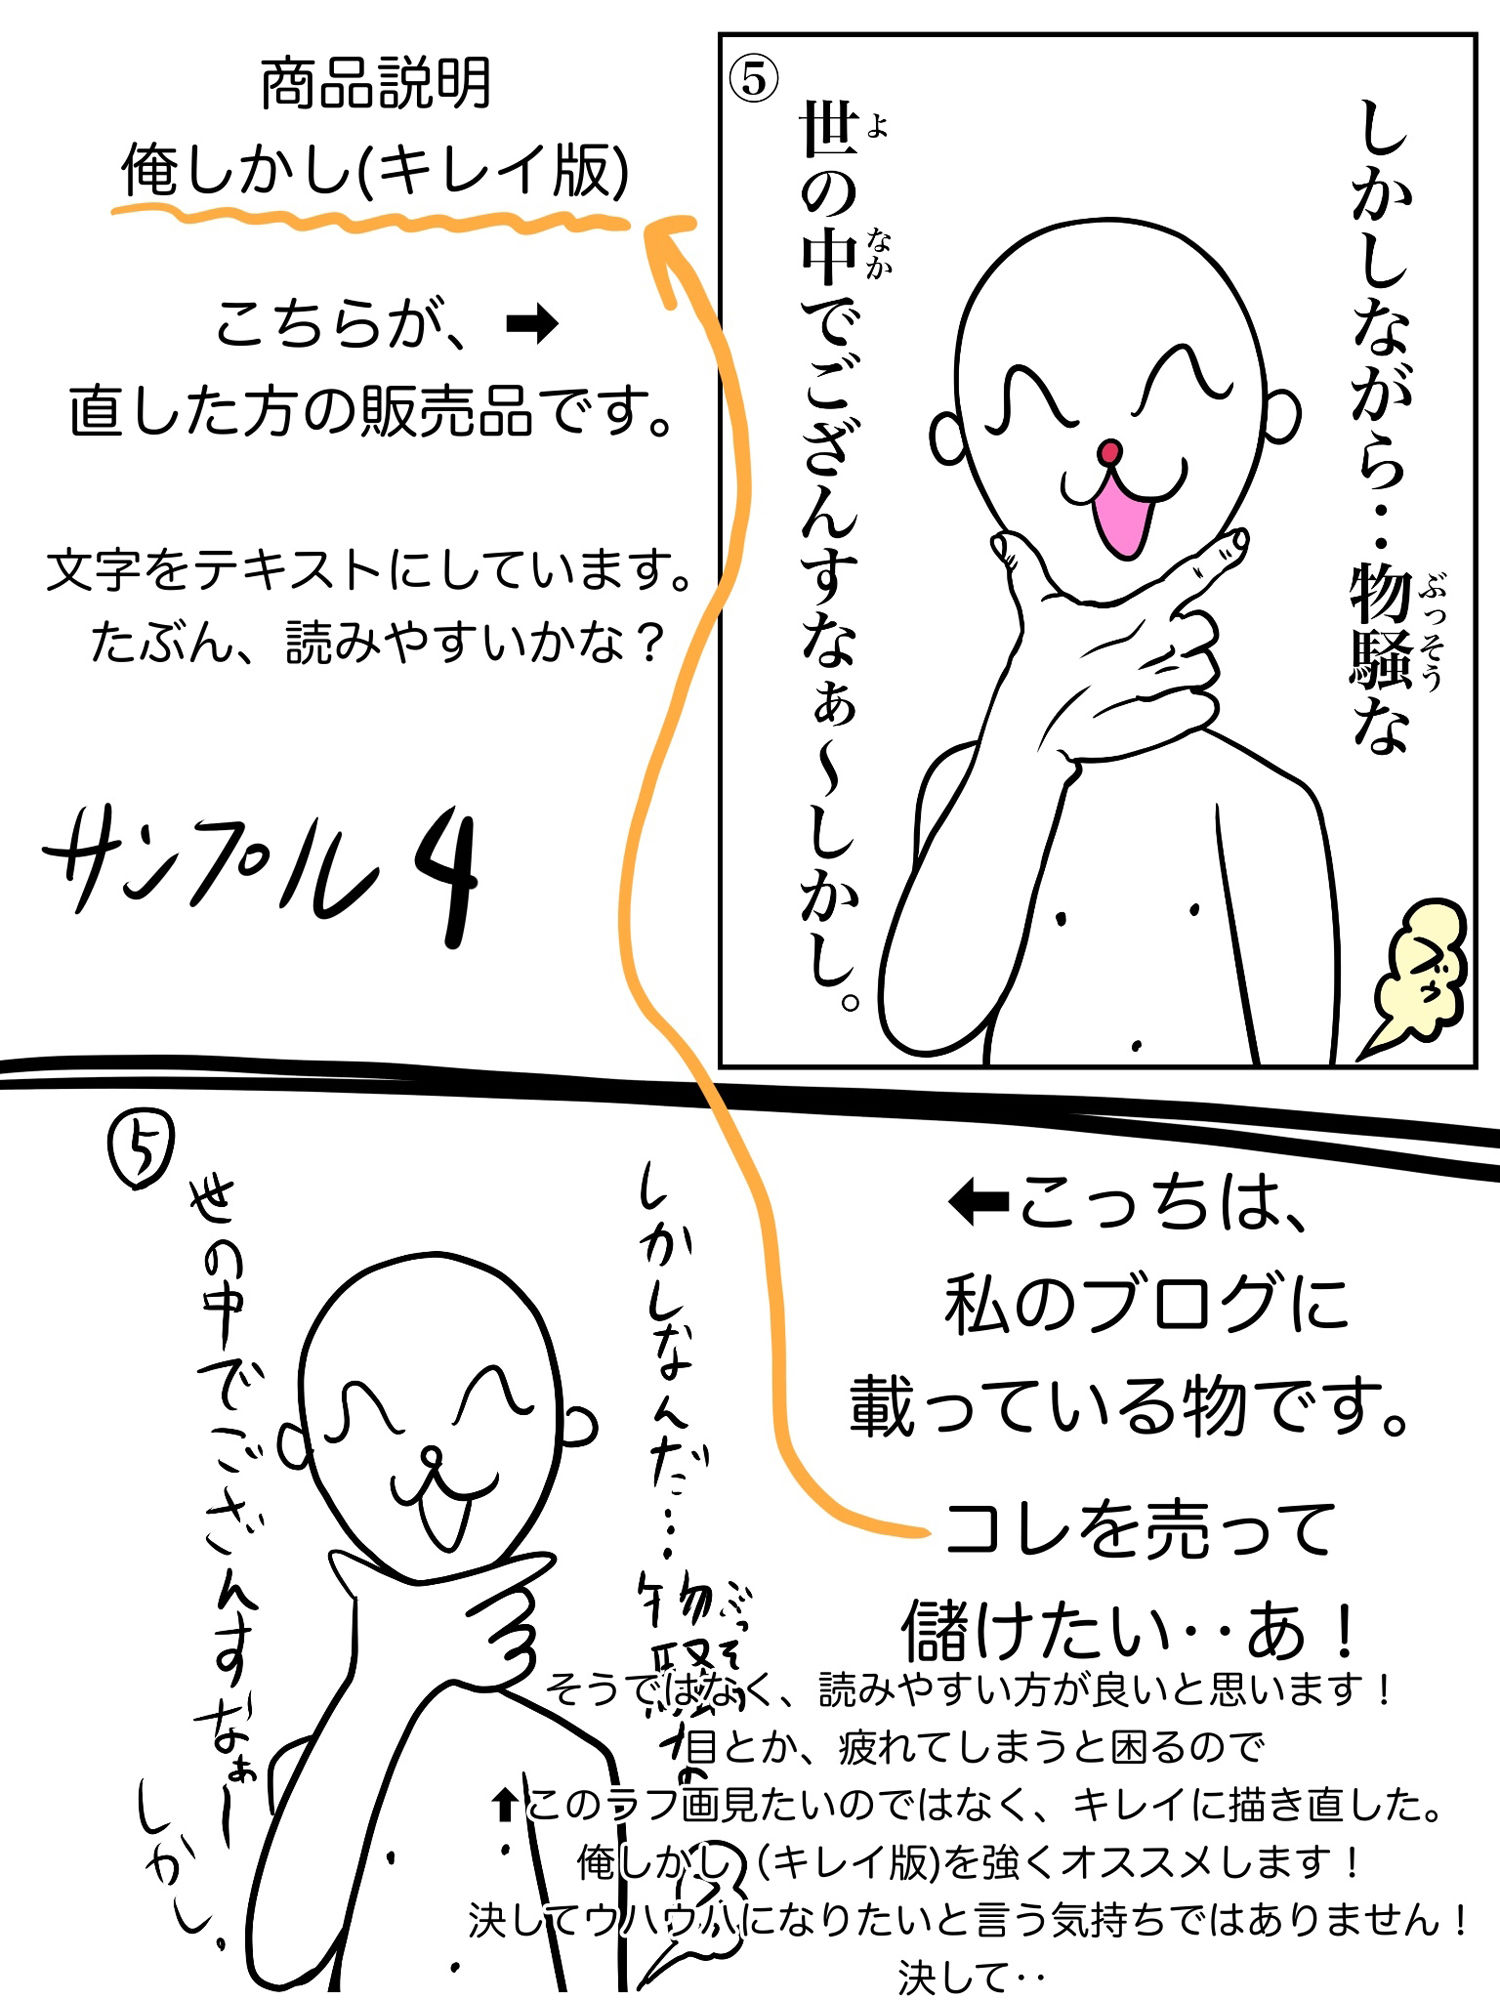 商品説明
俺しかし(キレイ版)
こちらが、➡
直した方の販売品です。
文字をテキストにしています。
たぶん、読みやすいかな？
サンプル4
⑤
しかしながら‥物騒な
ぶっそう
世の中でござんすなぁ〜しかし。
よ
なか
ブゥ
⑤
しかしなんだ…物騒
ぶっそ
世の中でござんすなぁー
しかし。
⬅こっちは、
私のブログに
載っている物です。
コレを売って
儲けたい‥あ！
そうではなく、読みやすい方が良いと思います！
目とか、疲れてしまうと困るので
⬆このラフ画見たいのではなく、キレイに描き直した。
俺しかし（キレイ版)を強くオススメします！
決してウハウハになりたいと言う気持ちではありません！
決して‥